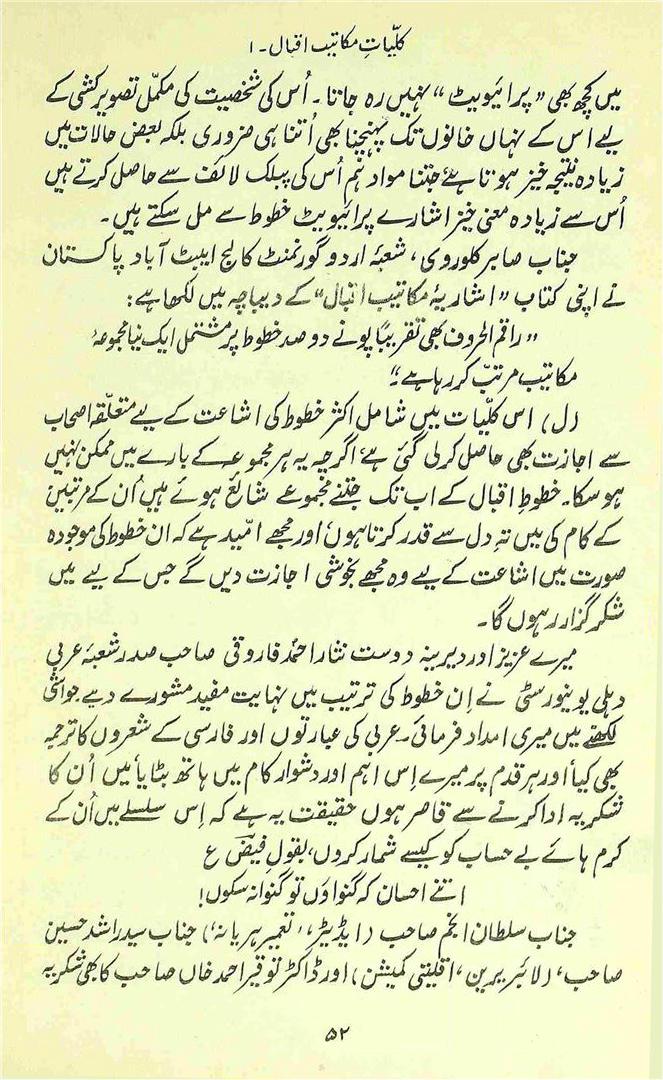 کلّیاتِ مکاتیب اقبال۔ ۱
میں کچھ بھی "پرائیویٹ" نہیں رہ جاتا۔ اُس کی شخصیت کی مکمّل تصویر کشی کے
لیے اس کے نہاں خانوں تک پہنچنا بھی اُتنا ہی ضروری بلکہ بعض حالات میں
زیادہ نتیجہ خیز ہوتا ہے، جتنا مواد ہم اُس کی پبلک لائف سے حاصل کرتے ہیں
اُس سے زیادہ معنی خیز اشارے پرائیویٹ خطوط سے مل سکتے ہیں۔
جناب صابر کلوروی، شعبۂ اردو گورنمنٹ کالج ایبٹ آباد پاکستان
نے اپنی کتاب "اشاریۂ مکاتیب اقبال" کے دیباچہ میں لکھا ہے:
"راقم الحروف بھی تقریباً پونے دو صد خطوط پر مشتمل ایک نیا مجموعۂ
مکاتیب مرتّب کر رہا ہے۔"
(ل) اس کلّیات میں شامل اکثر خطوط کی اشاعت کے لیے متعلّقہ اصحاب
سے اجازت بھی حاصل کر لی گئی ہے، اگرچہ یہ ہر مجموعے کے بارے میں ممکن نہیں
ہو سکا۔ خطوطِ اقبال کے اب تک جتنے مجموعے شائع ہوئے ہیں اُن کے مرتبین
کے کام کی میں تہِ دل سے قدر کرتا ہوں اور مجھے امّید ہے کہ ان خطوط کی موجودہ
صورت میں اشاعت کے لیے وہ مجھے بخوشی اجازت دیں گے جس کے لیے میں
شکر گزار رہوں گا۔
میرے عزیز اور دیرینہ دوست نثار احمد فاروقی صاحب صدر شعبۂ عربی
دہلی یونیورسٹی نے اِن خطوط کی ترتیب میں نہایت مفید مشورے دیے حواشی
لکھنے میں میری امداد فرمائی۔ عربی کی عبارتوں اور فارسی کے شعروں کا ترجمہ
بھی کیا، اور ہر قدم پر میرے اِس اہم اور دشوار کام میں ہاتھ بٹایا، میں اُن کا
شکریہ ادا کرنے سے قاصر ہوں حقیقت یہ ہے کہ اِس سلسلے میں اُن کے
کرم ہائے بے حساب کو کیسے شمار کروں، بقولِ فیضؔ ع
اتنے احسان کہ گنواؤں تو گنوا نہ سکوں!
جناب سلطان انجم صاحب (ایڈیٹر، 'تعمیر ہریانہ') جناب سید راشد حسین
صاحب، (لائبریرین، اقلیتی کمیشن) اور ڈاکٹر توقیر احمد خاں صاحب کا بھی شکریہ
۵۲